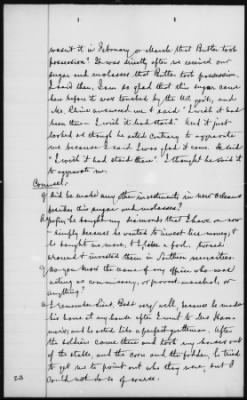 wasn't it in February or March that Butler took
possession? It was directly after we received our
sugar and molasses that Butler took possession.
I said then, I am so glad that this sugar came
here before it was touched by the U.S. Govt, and
Mr. Cline answered me & said "I wish it had
been there - I wish it had stood." but it just
looked as though he acted contrary to aggravate
me because I said I was glad it came. He said
"I wish it had stood there". I thought he said it
to aggravate me.
Counsel,
Q Did he make any other investments in New Orleans
besides this sugar and molasses?
A Before he bought my diamonds that I have on now
- simply because he wanted to invest his money, &
he bought no more, & I, like a fool,
around & invested them in Southern securities.
Q Do you know the name of any officer who was
acting as commissary, or provost marshal, or
anything?
A I remember Lieut. very well, because he made
his home at my house after I went to Mrs
and he acted like a perfect gentleman. After
the soldiers came there and took my horses out
of the stable, and the corn and the fodder, he tried
to get me to point out who they were, but I
could not do so of course.
23